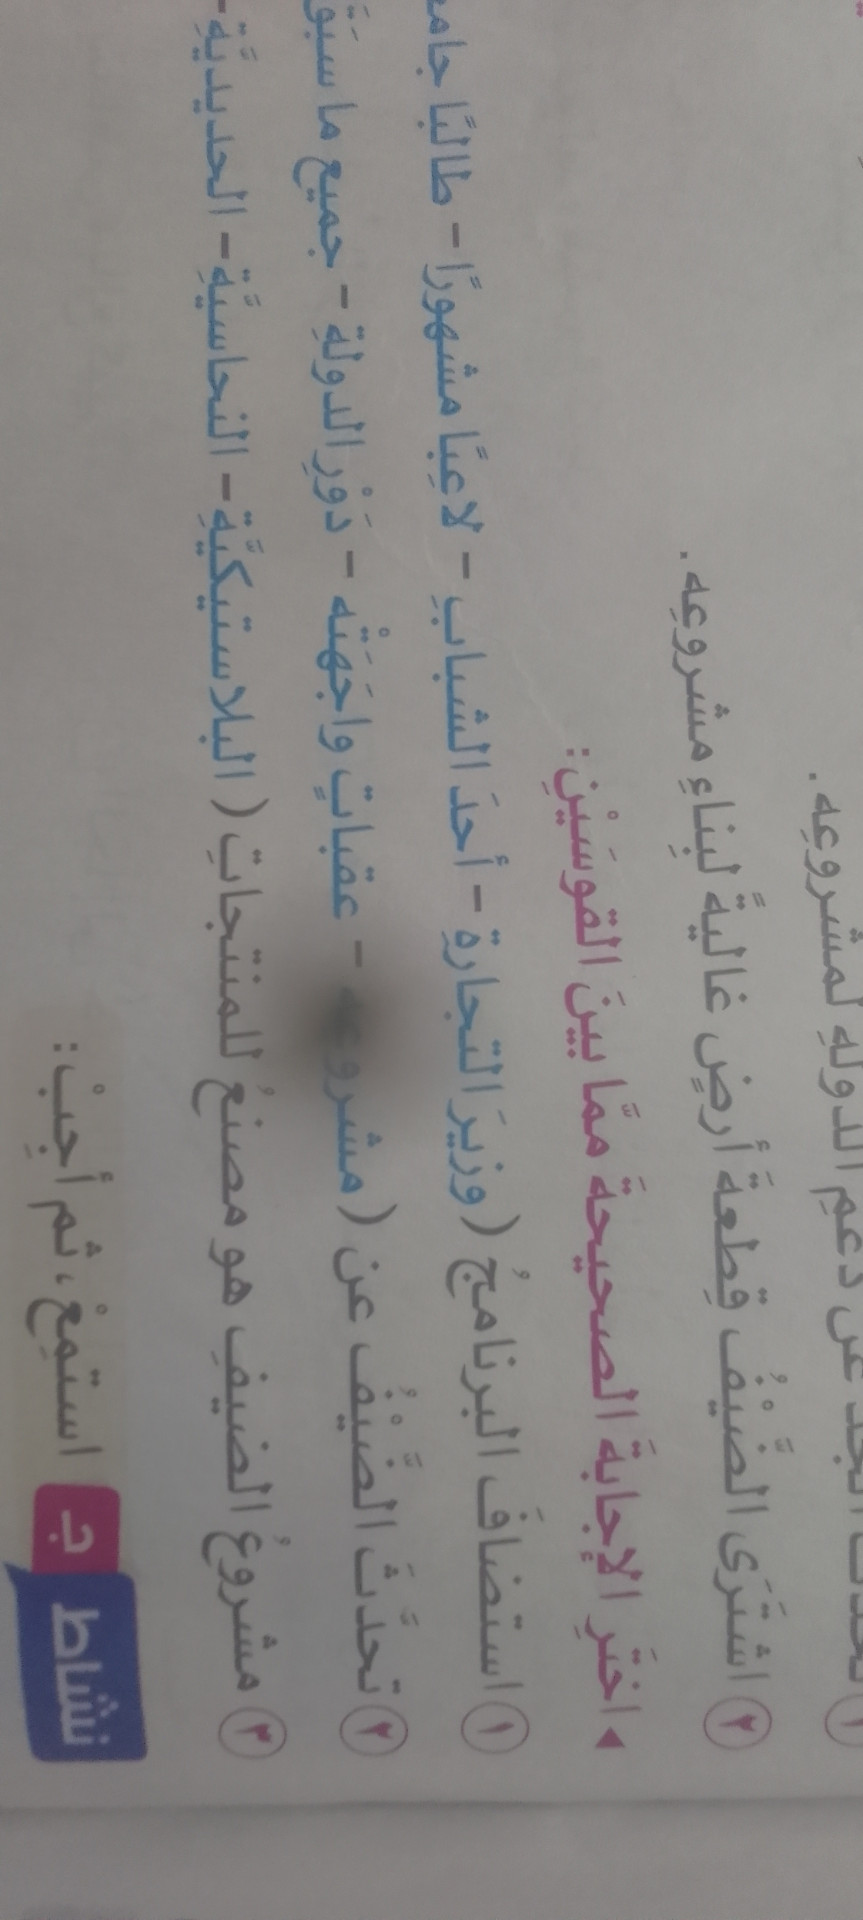 ١ تحدث عن دعمِ الدولةِ لمشروعِه.
٢ اشتَرَى الضَّيْفُ قِطعةَ أرضٍ غاليةً لبِناءِ مشروعِه.
◂ اخترِ الإجابةَ الصحيحةَ ممَّا بينَ القوسَيْنِ:
١ استضافَ البرنامجُ ( وزيرَ التجارةِ - أحدَ الشبابِ - لاعبًا مشهورًا - طالبًا
٢ تحدَّثَ الضَّيْفُ عن ( مشروعه - عقباتٍ واجَهَتْه - دَوْرِ الدولةِ - جميع ما سبَقَ
٣ مشروعُ الضيفِ هو مصنعُ للمنتجاتِ ( البلاستيكيَّةِ - النحاسيَّةِ - الحديديَّةِ -
نشاط ج استمِعْ، ثم أجِبْ: